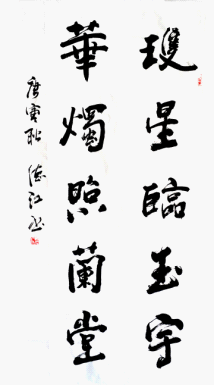 瓊星臨玉宇
華燭照蘭堂
庚寅秋 德江书